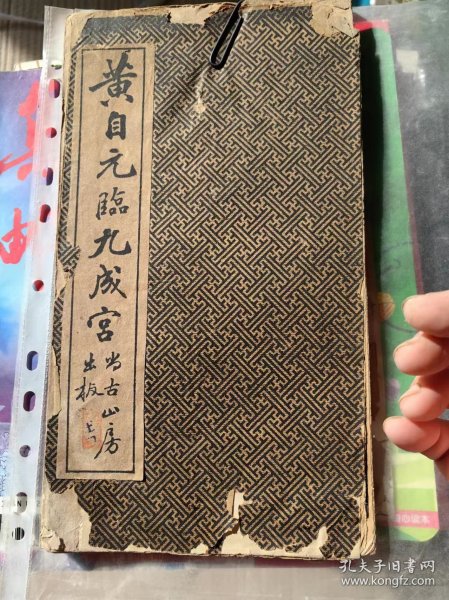 黄自元臨九成宮
尚古山房
出板
心读本
孔夫子旧书网
www.kongfz.com